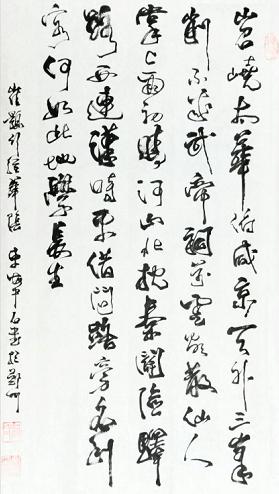 岧嶢太華俯咸京天外三峯
削不成武帝祠前雲欲散仙人
掌上雨初晴河山北枕秦關險驛
路西連漢畤平借問路旁名利
客何如此地學長生
崔顥行經華陰 書於鄭州